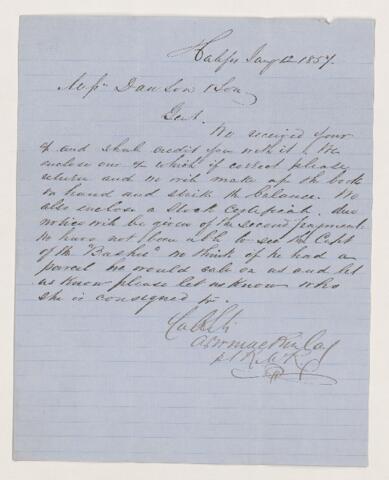 Halifx Jany 12 1857.
Messrs Dawson & Son
Gent.
We received your
% and shall credit you with it. We
enclose our % which if correct please
return and we will make up the book
on hand and strike the balance. We
also enclose a Stock Certificate. due
notice will be given of the second payment.
We have not been able to see the Capt
of the we think if he had a
parcel he would call on us and let
us know please let us know who
she is consigned to.
A & W MacKinlay